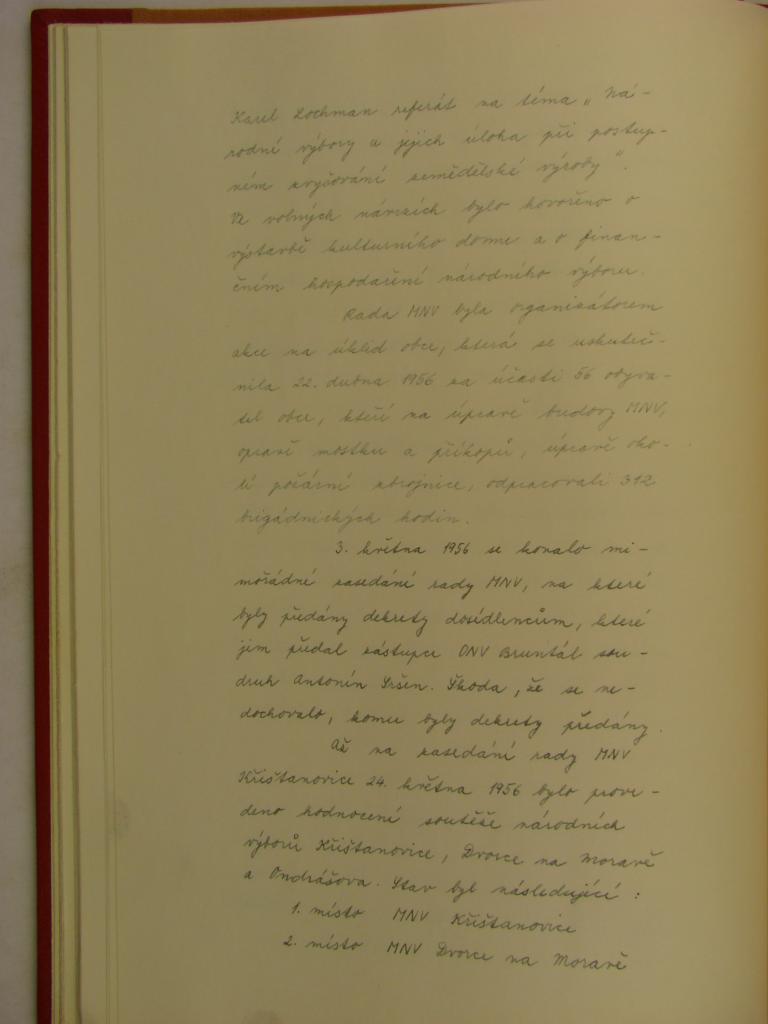 Karel Lochman referát na téma „Ná-
rodní výbory a jejich úloha při postup-
ném zvyšování zemědělské výroby".
Ve volných návrzích bylo hovořeno o
výstavbě kulturního domu a o finan-
čním hospodaření národního výboru.
Rada MNV byla organizátorem
akce na úklid obce, která se uskuteč-
nila 22. dubna 1956 za účasti 56 obyva-
tel obce, kteří na úpravě budovy MNV,
opravě mostku a příkopů, úpravě oko-
lí požární zbrojnice, odpracovali 312
brigádnických hodin.
3. května 1956 se konalo mi-
mořádné zasedání rady MNV, na které
byly předány dekrety dosídlencům, které
jim předal zástupce ONV Bruntál sou-
druh Antonín Sršen. Škoda, že se ne-
dochovalo, komu byly dekrety předány.
Až na zasedání rady MNV
Křišťanovice 24. května 1956 bylo prove-
deno hodnocení soutěže národních
výborů Křišťanovice, Dvorce na Moravě
a Ondrášova. Stav byl následující:
1. místo MNV Křišťanovice
2. místo MNV Dvorce na Moravě